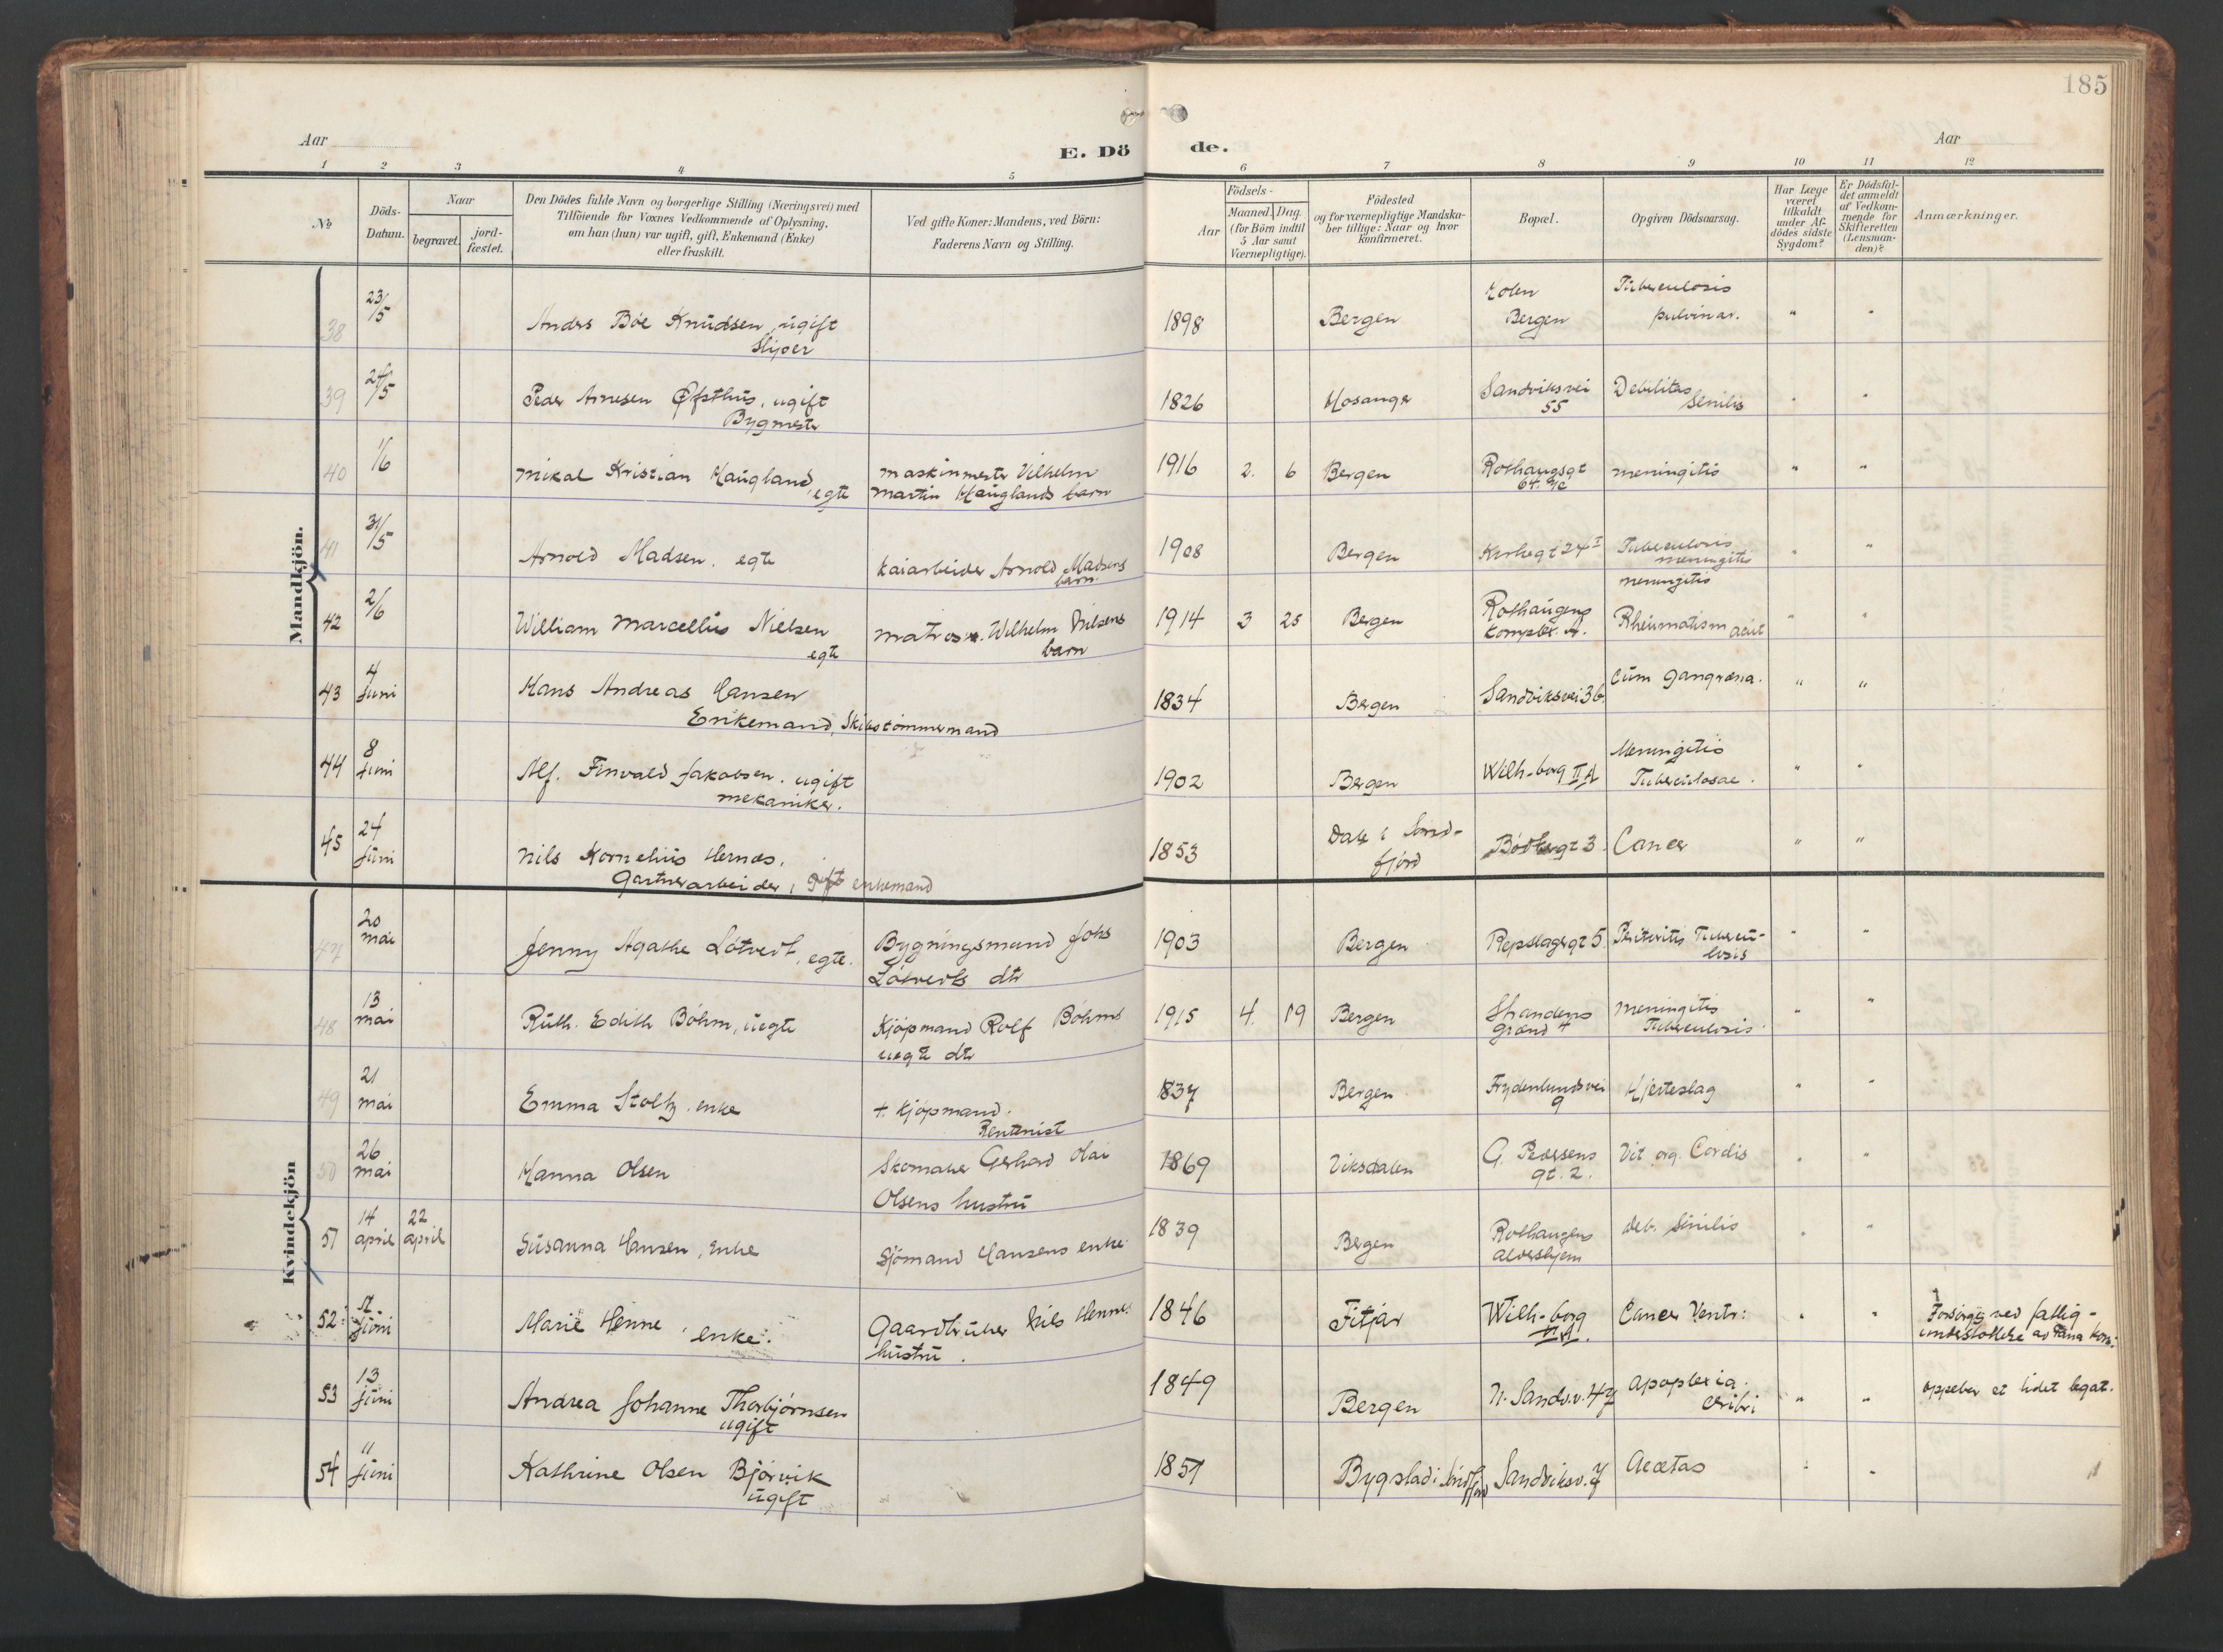 185
Aar
E. Dö
de.
Aar
1 2 3 4 5 6 7 8 9 10 11 12
№
Döds-
Datum.
Naar
begravet.
jord-
fæstet.
Den Dödes fulde Navn og borgerlige Stilling (Næringsvei) med
Tilföiende for Voxnes Vedkommende af Oplysning,
om han (hun) var ugift, gift, Enkemand (Enke)
eller fraskilt.
Ved gifte Koner: Mandens, ved Börn:
Faderens Navn og Stilling.
Födsels-
Aar
Maaned. Dag.
(for Börn indtil
5 Aar samt
Værnepligtige).
Födested
og for værnepligtige Mandska-
ber tillige: Naar og hvor
konfirmeret.
Bopæl.
Opgiven Dödsaarsag.
Har Læge
været
tilkaldt
under Af-
dödes sidste
Sygdom?
Er Dödsfal-
det anmeldt
af Vedkom-
mende for
Skifteretten
(Lensman-
den)?
Anmærkninger.
Mandkjön.
38 23/5 Andrs Böe Knudsen, ugift
Sliper
1898 Bergen
Bergen
Tuberculosis
pulvinar. " "
39 24/5 Peder Arnesen Øfsthus, ugift
Bygmestr
1826 Hosanger Sandviksvei
55
Debilitas
Senilis " "
40 1/6 Mikal Kristian Haugland, egte
maskinmestr Vilhelm
Martin Hauglands barn
1916 2. 6 Bergen Rothaugsgt
64.
meningitis " "
41 31/5 Arnold Madsen. egte
Kaiarbeider Arnold Madsens
barn.
1908 Bergen Kirkegt 24 I
Tuberculosis
meningitis " "
42 2/6 William Marcellius Nielsen
egte
matros Wilhelm Nilsens
barn
1914 3 25 Bergen Rothaugens
Komplex. A.
meningitis
Rheumatism acut " "
43 4
Juni
Hans Andreas Hansen
Enkemand, Skibstømmermand
1834 Bergen Sandviksvei 36
cum gangræna. " "
44 8
Juni
Alf. Finvald Jakobsen. ugift
mekaniker.
1902 Bergen Wilh-borg II A
Meningitis
Tuberculosae. " "
45 24
Juni
Nils Kornelius Hernes.
Gartnerarbeider, Gift enkemand
1853 Dale i Sönd-
fjord
Bödkergt 3. Cancer " "
Kvindekjön
47 20
mai
Jenny Agathe Lötvedt, egte.
Bygningsmand Johs
Lötvedts dtr
1903 Bergen Repslagergt 5. Peritoritis Tubercu-
losis " "
48 13
mai
Ruth. Edith Böhm, uegte
Kjöpmand Rolf Böhms
uegte dtr
1915 4. 19 Bergen Strandens
grænd 4
meningitis
Tuberculosis. " "
49 21
mai
Emma Stoltz. enke
+ Kjöpmand.
Rentenist
1837 Bergen Frydenlundsvei
9
Hjerteslag " "
50 26
mai
Hanna Olsen
Skomaker Gerhard Olai
Olsens hustru
1869 Viksdalen G. Pedersens
gt. 2.
Vit. org. Cordis " "
51 14
april
22
april
Susanna Hansen, enke
Sjömand Hansens enke.
1839 Bergen Rothaugens
aldershjem
deb. Sinilis " "
52
Juni
Marie Henne, enke.
Gaardbruker Nils Hennes
hustru.
1846 Fitjar Wilh-borg
VI A.
Cancer Ventr: " "
Forsörges ved fattig-
understøttelse av Fana Kom:
53 13
juni
Andrea Johanne Thorbjørnsen
ugift
1849 Bergen N. Sandv.v. 47
apoplexia.
cribri " "
oppeber et lidet legat.
54 11
juni
Kathrine Olsen Bjørvik
ugift
1851 Bygstad i Söndfjord Sandviksv. 7 Aeætas " "